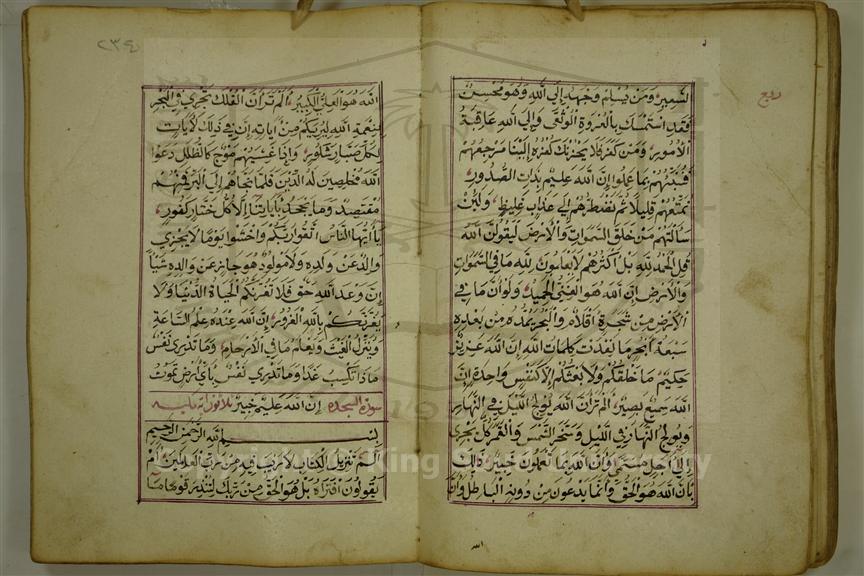 ربع
السعير ومن يسلم وجهه إلى الله وهو محسن
فقد استمسك بالعروة الوثقى وإلى الله عاقبة
الأمور ومن كفر فلا يحزنك كفره إلينا مرجعهم
فننبئهم بما عملوا إن الله عليم بذات الصدور
نمتعهم قليلا ثم نضطرهم إلى عذاب غليظ ولئن
سألتهم من خلق السموات والأرض ليقولن الله
قل الحمد لله بل أكثرهم لا يعلمون لله ما في السموات
والأرض إن الله هو الغني الحميد ولو أن ما في
الأرض من شجرة أقلام والبحر يمده من بعده
سبعة أبحر ما نفدت كلمات الله إن الله عزيز
حكيم ما خلقكم ولا بعثكم إلا كنفس واحدة إن
الله سميع بصير ألم تر أن الله يولج الليل في النهار
ويولج النهار في الليل وسخر الشمس والقمر كل يجري
إلى أجل مسمى وأن الله بما تعملون خبير ذلك
بأن الله هو الحق وأن ما يدعون من دونه الباطل وأن
الله
٢٣٤
الله هو العلي الكبير ألم تر أن الفلك تجري في البحر
بنعمة الله ليريكم من آياته إن في ذلك لآيات
لكل صبار شكور وإذا غشيهم موج كالظلل دعوا
الله مخلصين له الدين فلما نجاهم إلى البر فمنهم
مقتصد وما يجحد بآياتنا إلا كل ختار كفور
يا أيها الناس اتقوا ربكم واخشوا يوما لا يجزي
والد عن ولده ولا مولود هو جاز عن والده شيأ
إن وعد الله حق فلا تغرنكم الحياة الدنيا ولا
يغرنكم بالله الغرور إن الله عنده علم الساعة
وينزل الغيث ويعلم ما في الأرحام وما تدري نفس
ماذا تكسب غدا وما تدري نفس بأي أرض تموت
إن الله عليم خبير سورة السجدة ثلاثون آية مكية
بسم الله الرحمن الرحيم
الم تنزيل الكتاب لا ريب فيه من رب العالمين أم
يقولون افتراه بل هو الحق من ربك لتنذر قوما ما
King Saud University